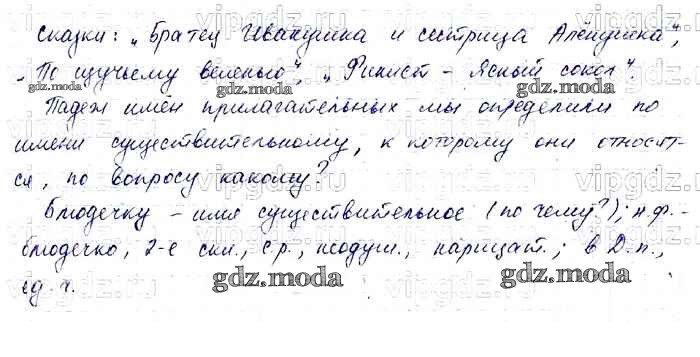 Сказки: „Братец Иванушка и сестрица Алёнушка",
„По щучьему веленью", „Финист - Ясный сокол".
Падеж имён прилагательных мы определили по
имени существительному, к которому они относят-
ся, по вопросу какому?
Блюдечку - имя существительное (по чему?); н.ф. -
блюдечко, 2-е скл., с.р., неодуш., нарицат.; в Д.п.,
ед.ч.
gdz.moda
gdz.moda
gdz.moda
gdz.moda
gdz.moda
gdz.moda